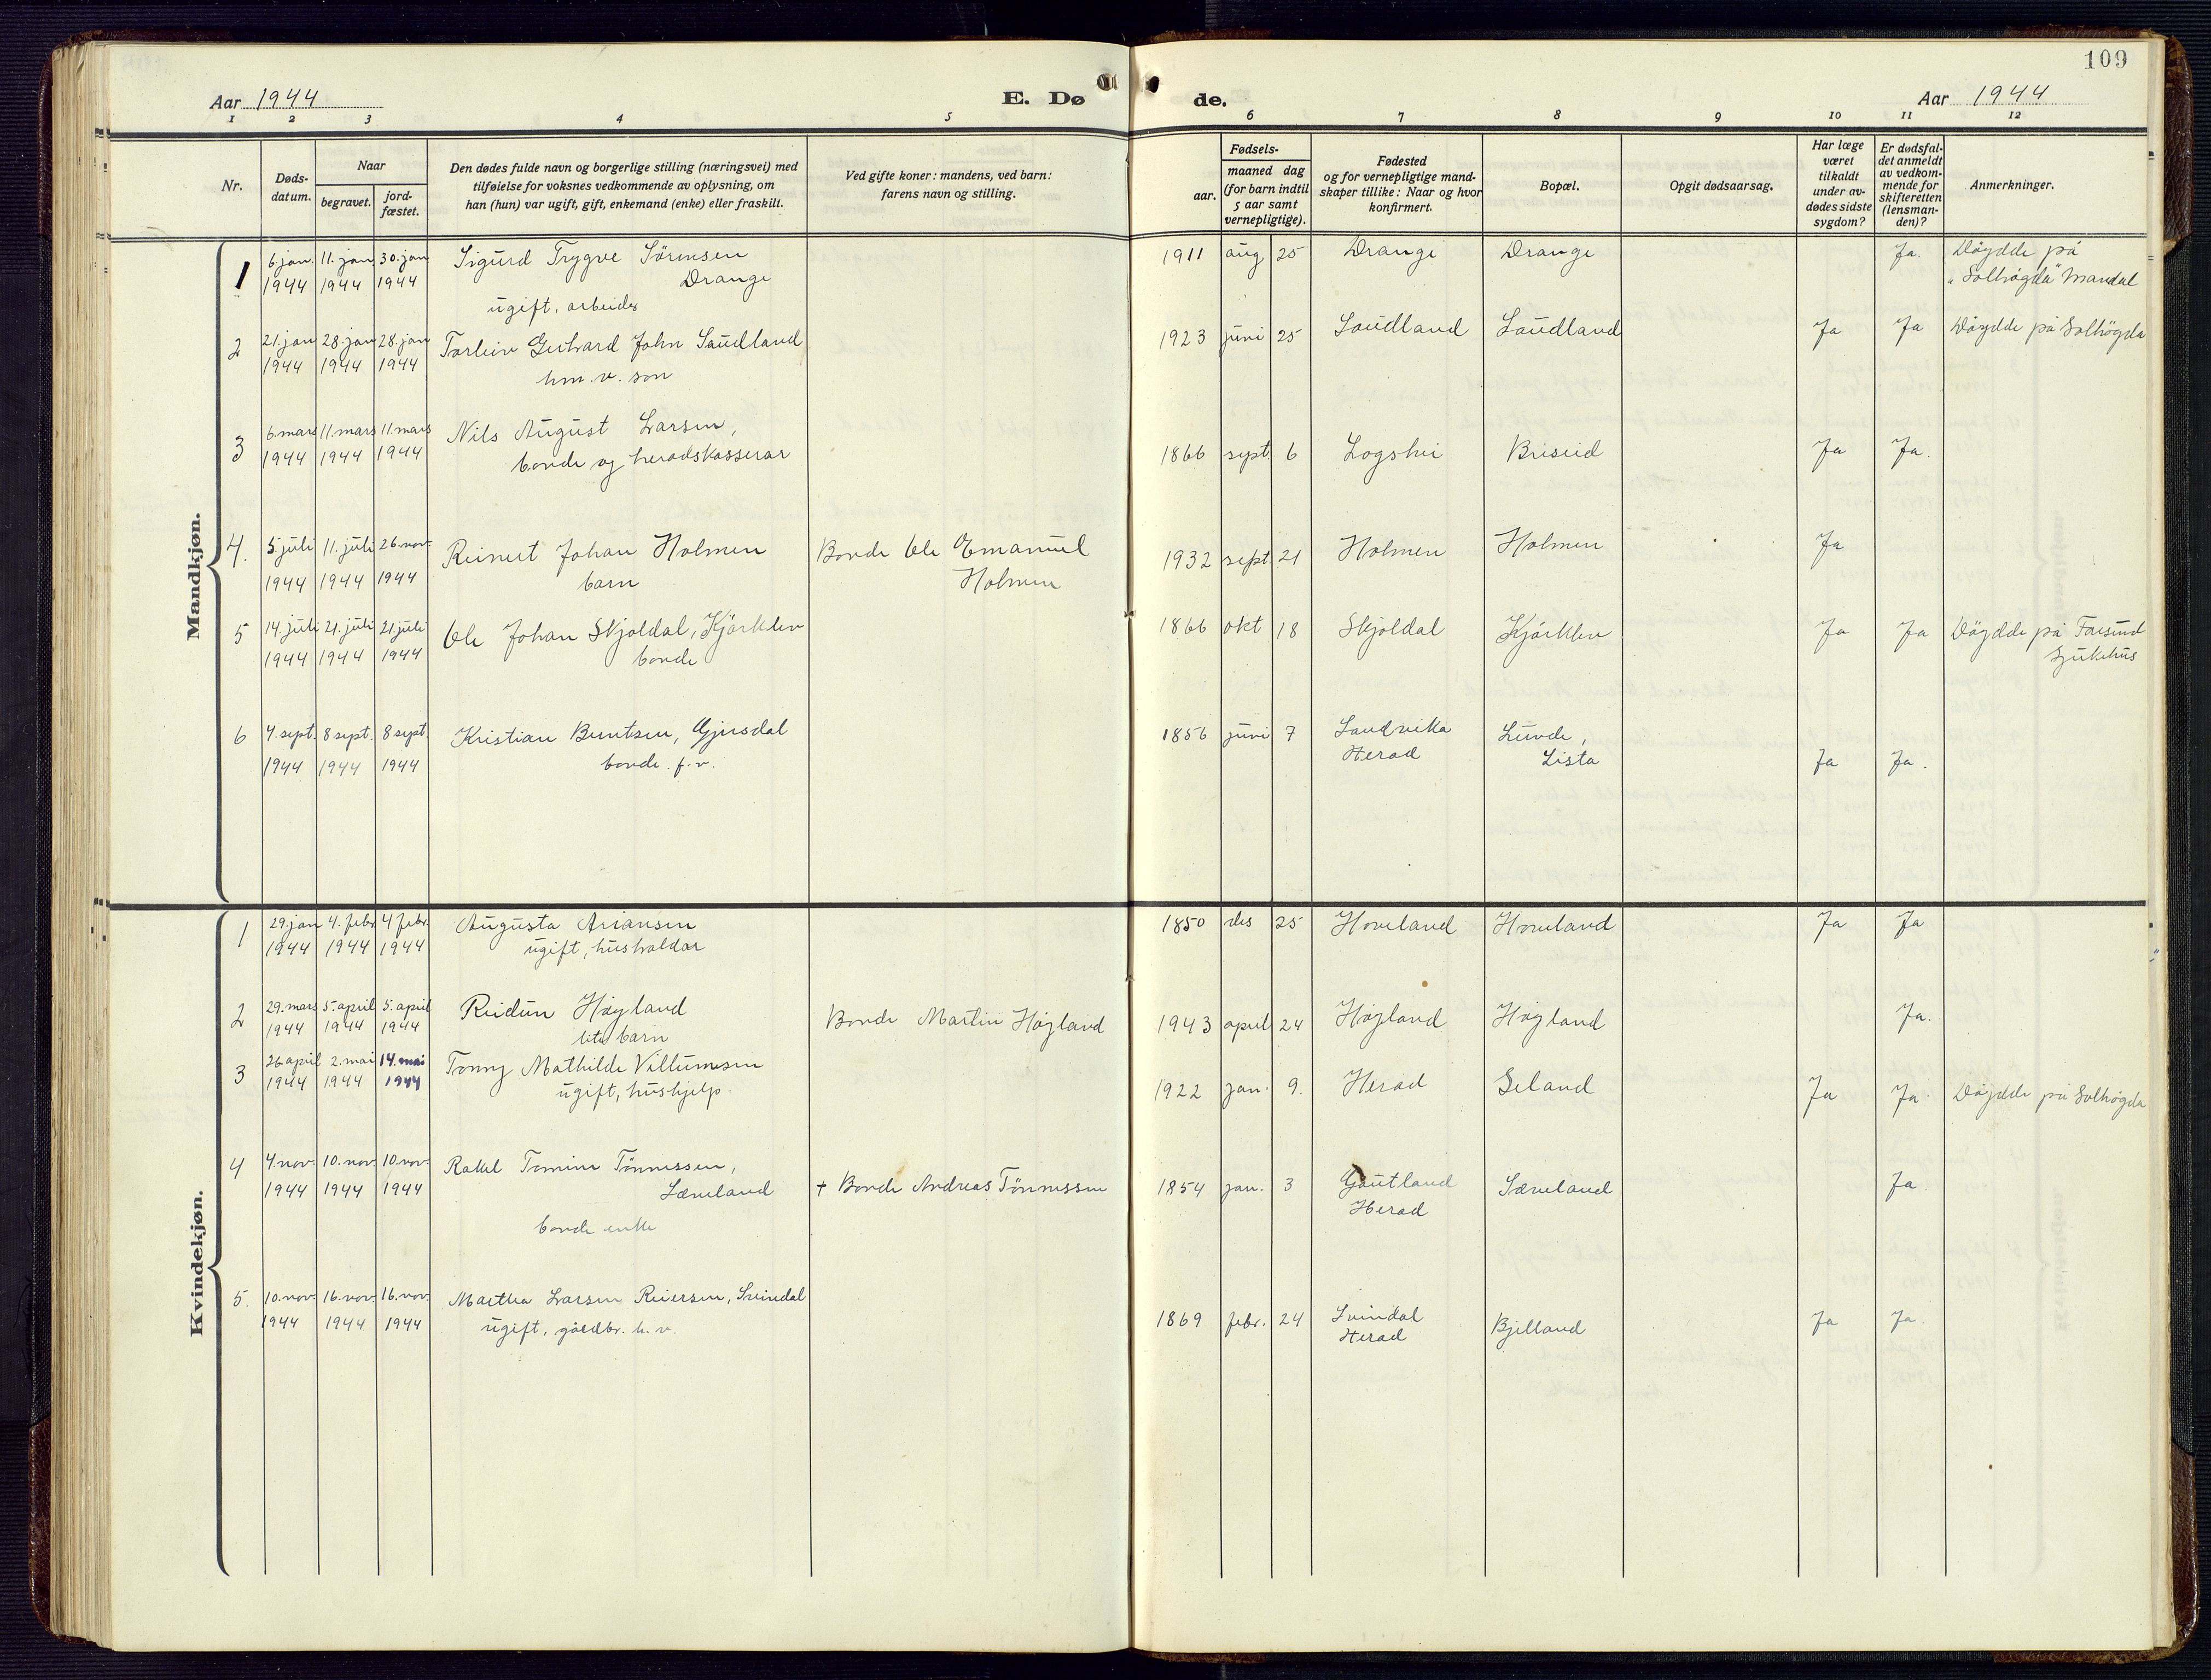 109
Aar 1944
E. Dø
de.
Aar 1944
1 2 3 4 5 6 7 8 9 10 11 12
Nr.
Døds-
datum.
Naar
begravet.
jord-
fæstet.
Den dødes fulde navn og borgerlige stilling (næringsvei) med
tilføielse for voksnes vedkommende av oplysning, om
han (hun) var ugift, gift, enkemand (enke) eller fraskilt.
Ved gifte koner: mandens, ved barn:
farens navn og stilling.
Fødsels-
aar.
maaned dag
(for barn indtil
5 aar samt
vernepligtige).
Fødested
og for vernepligtige mand-
skaper tillike: Naar og hvor
konfirmert.
Bopæl.
Opgit dødsaarsag.
Har læge
været
tilkaldt
under av-
dødes sidste
sygdom?
Er dødsfal-
det anmeldt
av vedkom-
mende for
skifteretten
(lensman-
den)?
Anmerkninger.
Mandkjøn.
1 6 jan. 11. jan 30. jan Sigurd Trygve Sörensen 1911 aug 25 Drange Drange Ja. Döydde på
1944 1944 1944 Drange "Solhøgda" Mandal
ugift, arbeider
2 21. jan 28. jan 28. jan Torleiv Gerhard John Saudland 1923 juni 25 Saudland Saudland Ja Ja Döydde på Solhögda
1944 1944 1944 hm. v. son
3 6. mars 11. mars 11. mars Nils August Larsen, 1866 sept. 6 Logshei Briseid Ja Ja.
1944 1944 1944 bonde og heradskasserar
4. 5. juli 11. juli 26. nov. Reinert Johan Holmen Bonde Ole Emanuel 1932 sept. 21 Holmen Holmen Ja
1944 1944 1944 barn Holmen
5 14. juli 21. juli 21. juli Ole Johan Skjoldal, Kjörklev 1866 okt 18 Skjoldal Kjörklev Ja Ja Döydde på Farsund
1944 1944 1944 bonde Sjukehus
6 4. sept. 8 sept. 8 sept. Kristian Berntsen, Gjersdal 1856 juni 7 Sandvika Lunde,
1944 1944 1944 bonde. f. v. Herad Lista Ja Ja.
Kvindekjøn.
1 29. jan 4. febr. 4 febr. Augusta Ariansen 1850 des 25 Hoveland Hoveland Ja Ja
1944 1944 1944 ugift, hushaldar
2 29. mars 5. april 5. april Reidun Høyland Bonde Martin Høyland 1943 april 24 Høyland Høyland Ja.
1944 1944 1944 lite barn
3 26 april 2. mai 14. mai Tonny Mathilde Villumsen 1922 jan. 9. Herad Seland Ja Ja. Döydde på Solhøgda
1944 1944 1944 ugift, hushjelp.
4 4. nov. 10. nov. 10. nov. Rakel Tomine Tönnessen,
1944 1944 1944 Sæveland + Bonde Andreas Tönnessen 1854 jan. 3 Gautland Sæveland Ja.
bonde enke Herad
5. 10. nov. 16. nov. 16. nov. Martha Larsen Reiersen, Svindal 1869 febr. 24 Svindal Bjelland Ja Ja.
1944 1944 1944 ugift, gårdbr. h. v. Herad